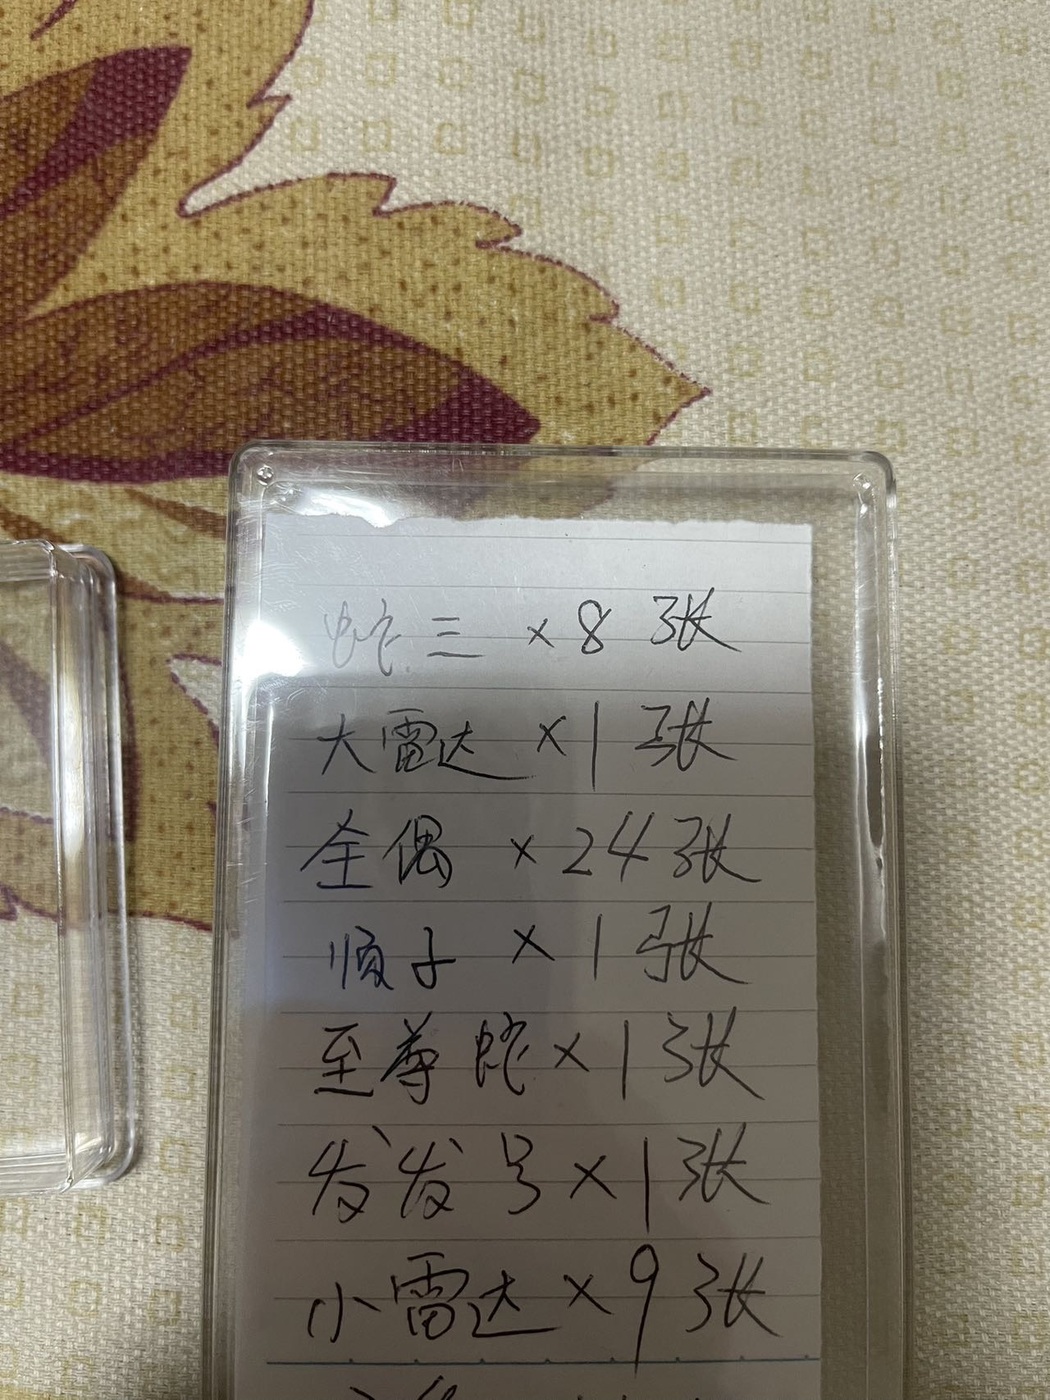 蛇三 × 8 张
大雷达 × 1 张
全偶 × 24 张
顺子 × 1 张
至尊蛇 × 1 张
发发号 × 1 张
小雷达 × 9 张